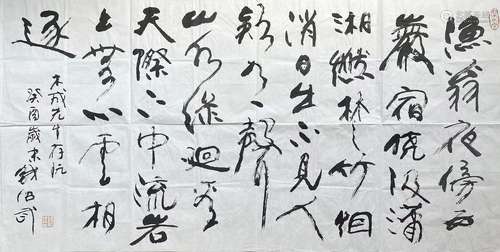 漁翁夜傍西
巖宿曉汲清
湘燃楚竹烟
消日出不見人
欸乃一聲
山水綠迴看
天際下中流岩
上無心雲相
逐
木成先生存玩
癸酉歲末錢紹武